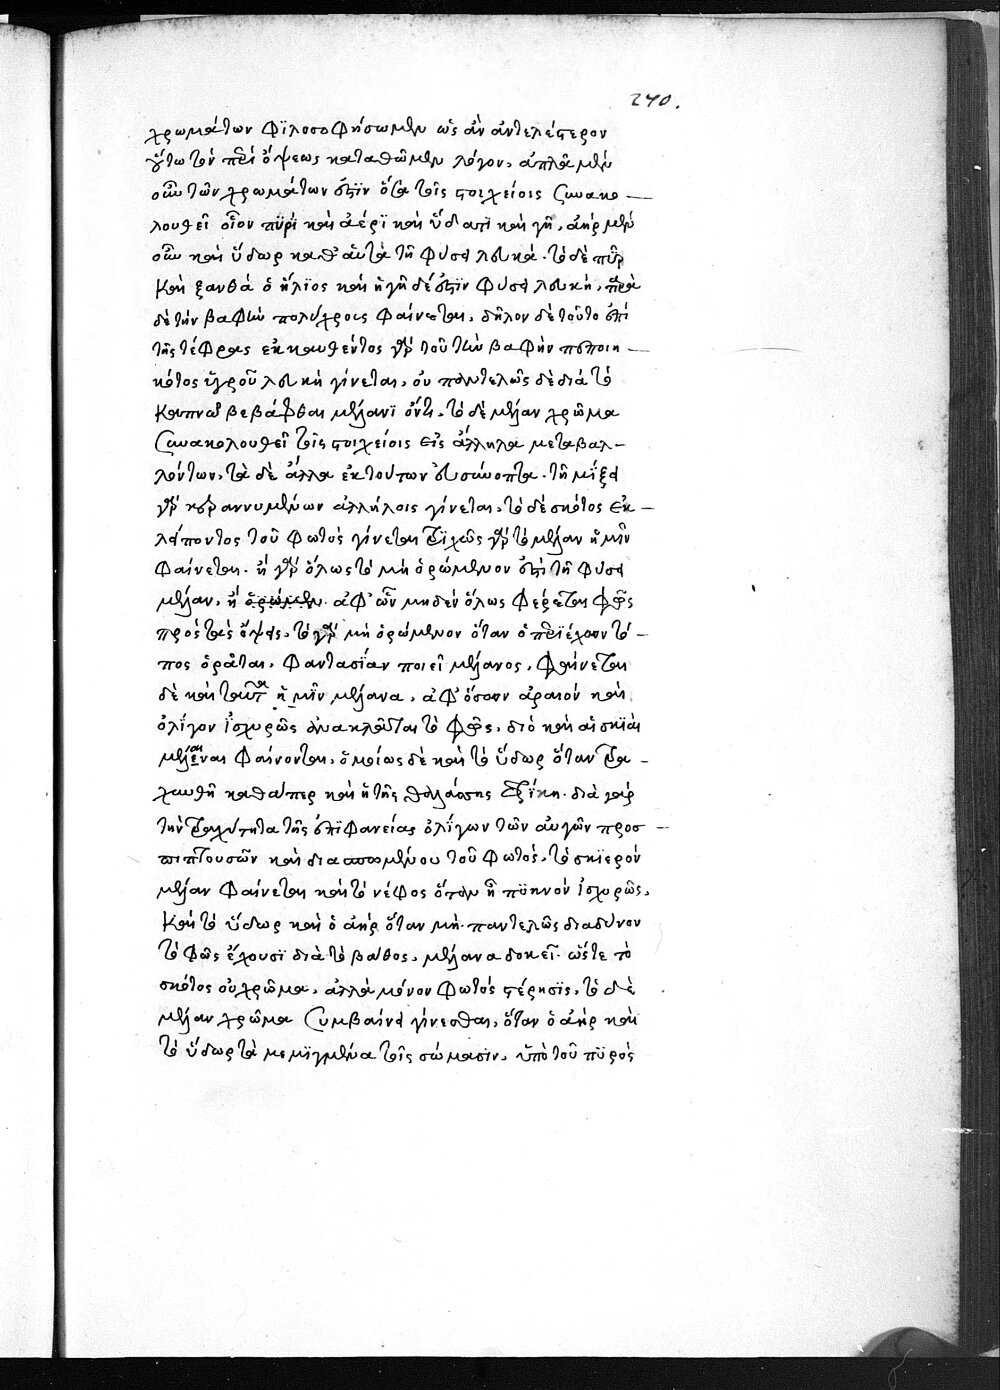 240.
χρωμάτων φϊλοσοφήσωμεν ὡς ἂν ἀντελέστερον
οὕτω τὸν περὶ ὄψεως καταθῶμεν λόγον, ἁπλᾶ μὲν
οὖν τῶν χρωμάτων ἐστὶν ὅσα τοῖς στοιχείοις συνακο
λουθεῖ οἷον πϋρὶ καὶ ἀέρϊ καὶ ὕδατι καὶ γῆ, ἀὴρ μὲν
οὖν καὶ ὕδωρ καθ' αὑτὰ τῇ φύσει λευκά. τὸ δὲ πῦρ
καὶ ξανθὰ ὁ ἥλϊος καὶ ἡ γῆ δέ ἐστϊν φύσει λευκὴ, παρὰ
δὲ τὴν βαφὴν πολύχροις φαίνεται, δῆλον δὲ τοῦτο ἐπὶ
τῆς τέφρας ἐκκαυθέντος γὰρ τοῦ τὴν βαφὴν πεποιη
κότος ὑγροῦ λευκὴ γίνεται, οὐ παντελῶς δὲ διὰ τὸ
καπνῷ βεβάφθαι μέλανϊ ὄντι. τὸ δὲ μέλαν χρῶμα
συνακολουθεῖ τοῖς στοιχείοις εἰς ἄλληλα μεταβαλ
λόντων, τὰ δὲ ἄλλα ἐκ τούτων εὐσύνοπτα. τῇ μίξει
γὰρ κεραννυμένων ἀλλήλοις γίνεται, τὸ δὲ σκότος ἐκ
λείποντος τοῦ φωτὸς γίνεται τρϊχῶς γὰρ τὸ μέλαν ἡμῖν
φαίνεται. ἢ γὰρ ὅλως τὸ μὴ ὁρώμενον ἐστὶ τῇ φύσει
μέλαν, ἢ ὁρώμεν. ἀφ' ὧν μηδὲν ὅλως φέρεται φῶς
πρὸς τὰς ὄψεις. τὸ γὰρ μὴ ὁρώμενον ὅταν ὁ περϊέχων τό
πος ὁρᾶται, φαντασίαν ποιεῖ μέλανος, φαίνεται
δὲ καὶ ταῦτα ἡμῖν μέλανα, ἀφ' ὅσων ἀραιὸν καὶ
ὀλίγον ἰσχυρῶς ἀνακλᾶται τὸ φῶς, διὸ καὶ αἱ σκϊαὶ
μέλεναι φαίνονται, ὁμοίως δὲ καὶ τὸ ὕδωρ ὅταν τρα
χυνθῇ καθάπερ καὶ ἡ τῆς θαλάσσης φρίκη. διὰ γὰρ
τὴν τραχύτητα τῆς ἐπϊφανείας ὀλίγων τῶν αὐγῶν προσ
πιπτουσῶν καὶ διασπωμένου τοῦ φωτὸς, τὸ σκϊερὸν
μέλαν φαίνεται καὶ τὸ νέφος ὅταν ᾖ πϋκνὸν ἰσχυρῶς,
καὶ τὸ ὕδωρ καὶ ὁ ἀὴρ ὅταν μὴ παντελῶς διαδύνον
τὸ φῶς ἔχουσϊ διὰ τὸ βάθος, μέλανα δοκεῖ. ὥστε τὸ
σκότος οὐ χρῶμα, ἀλλὰ μόνον φωτὸς στέρησϊς, τὸ δὲ
μέλαν χρῶμα συμβαίνει γίνεσθαι, ὅταν ὁ ἀὴρ καὶ
τὸ ὕδωρ τὰ μεμϊγμένα τοῖς σώμασϊν, ὑπὸ τοῦ πϋρὸς